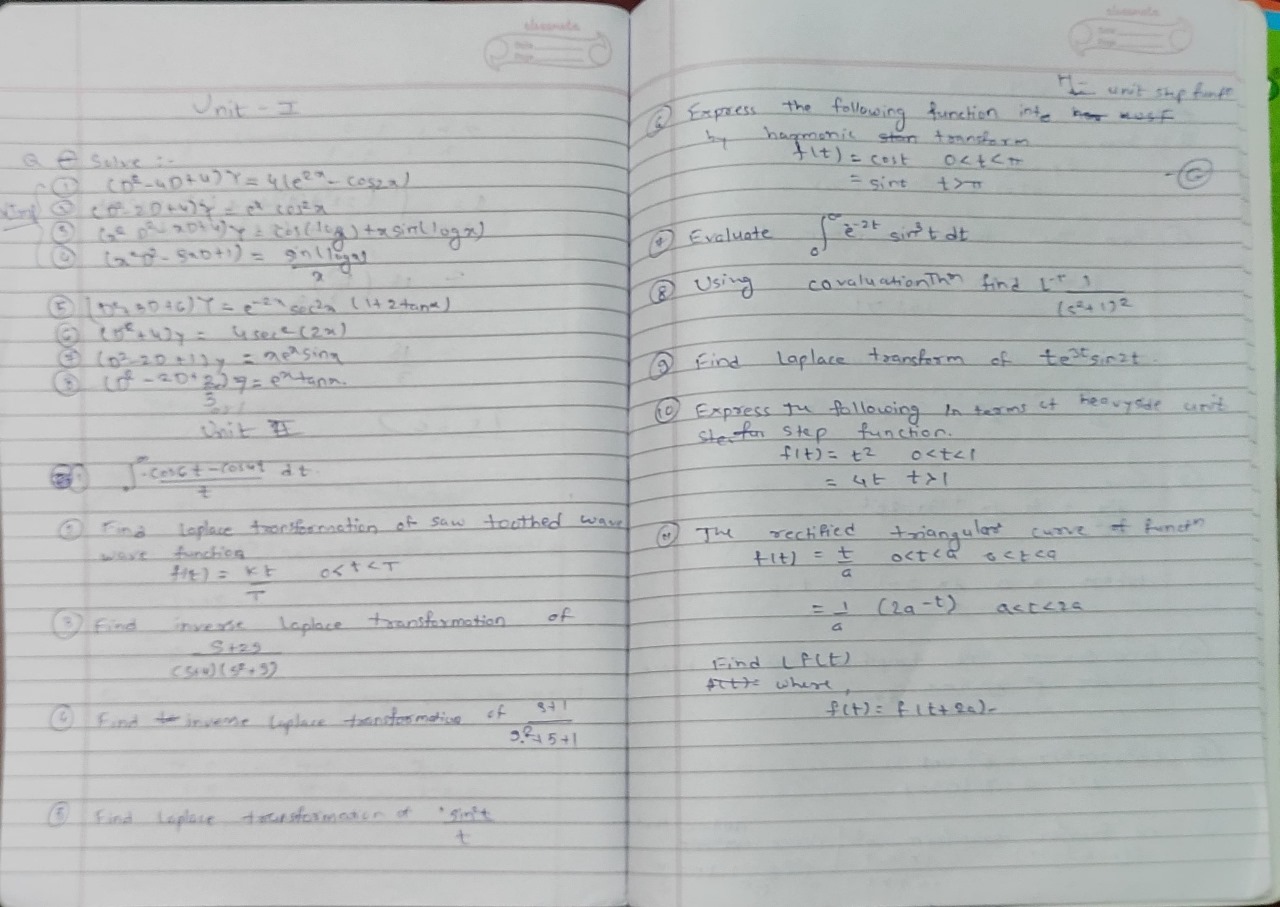 classmate
Unit - I
Q Solve :-
① (D² - 4D + 4) Y = 4(e²ˣ - cos2x)
② (D² - 2D + 4) y = eˣ cos²x
③ (x² D² - xD + 4) y = cos(log) + x sin(log x)
④ (x²D² - 5xD + 1) = sin(log x) / x
⑤ + 6) Y = e⁻²ˣ sec²x (1 + 2tanx)
⑥ (D² + 4) y = 4 sec² (2x)
⑦ (D² - 2D + 1) y = xeˣ sinx
⑧ (D² - 2D + 2) y = eˣ tanx.
Unit II
∫₀^∞ cos6t - cos4t / t dt.
Find Laplace transformation of saw toothed wave
wave function
f(t) = Kt / T 0 < t < T
③ Find inverse Laplace transformation of
S+29 / (S+4)(S²+9)
④ Find inverse Laplace transformation of S+1 / S²+S+1
⑤ Find Laplace transformation of sin²t / t
classmate
unit step
⑥ Express the following function into
by transform
f(t) = cost 0<t<π
= sint t>π
⑦ Evaluate ∫₀^∞ e⁻²ᵗ sin³t dt
⑧ Using covaluation Thm find L⁻¹ 1 / (s²+1)²
⑨ Find Laplace transform of te³ᵗ sin2t.
⑩ Express the following In terms of heavyside unit
step function.
f(t) = t² 0<t<1
= 4t t>1
⑪ The rectified triangular curve of functn
f(t) = t / a 0<t<a 0<t<a
= 1 / a (2a-t) a<t<2a
Find Lf(t)
where,
f(t) = f(t+2a)-